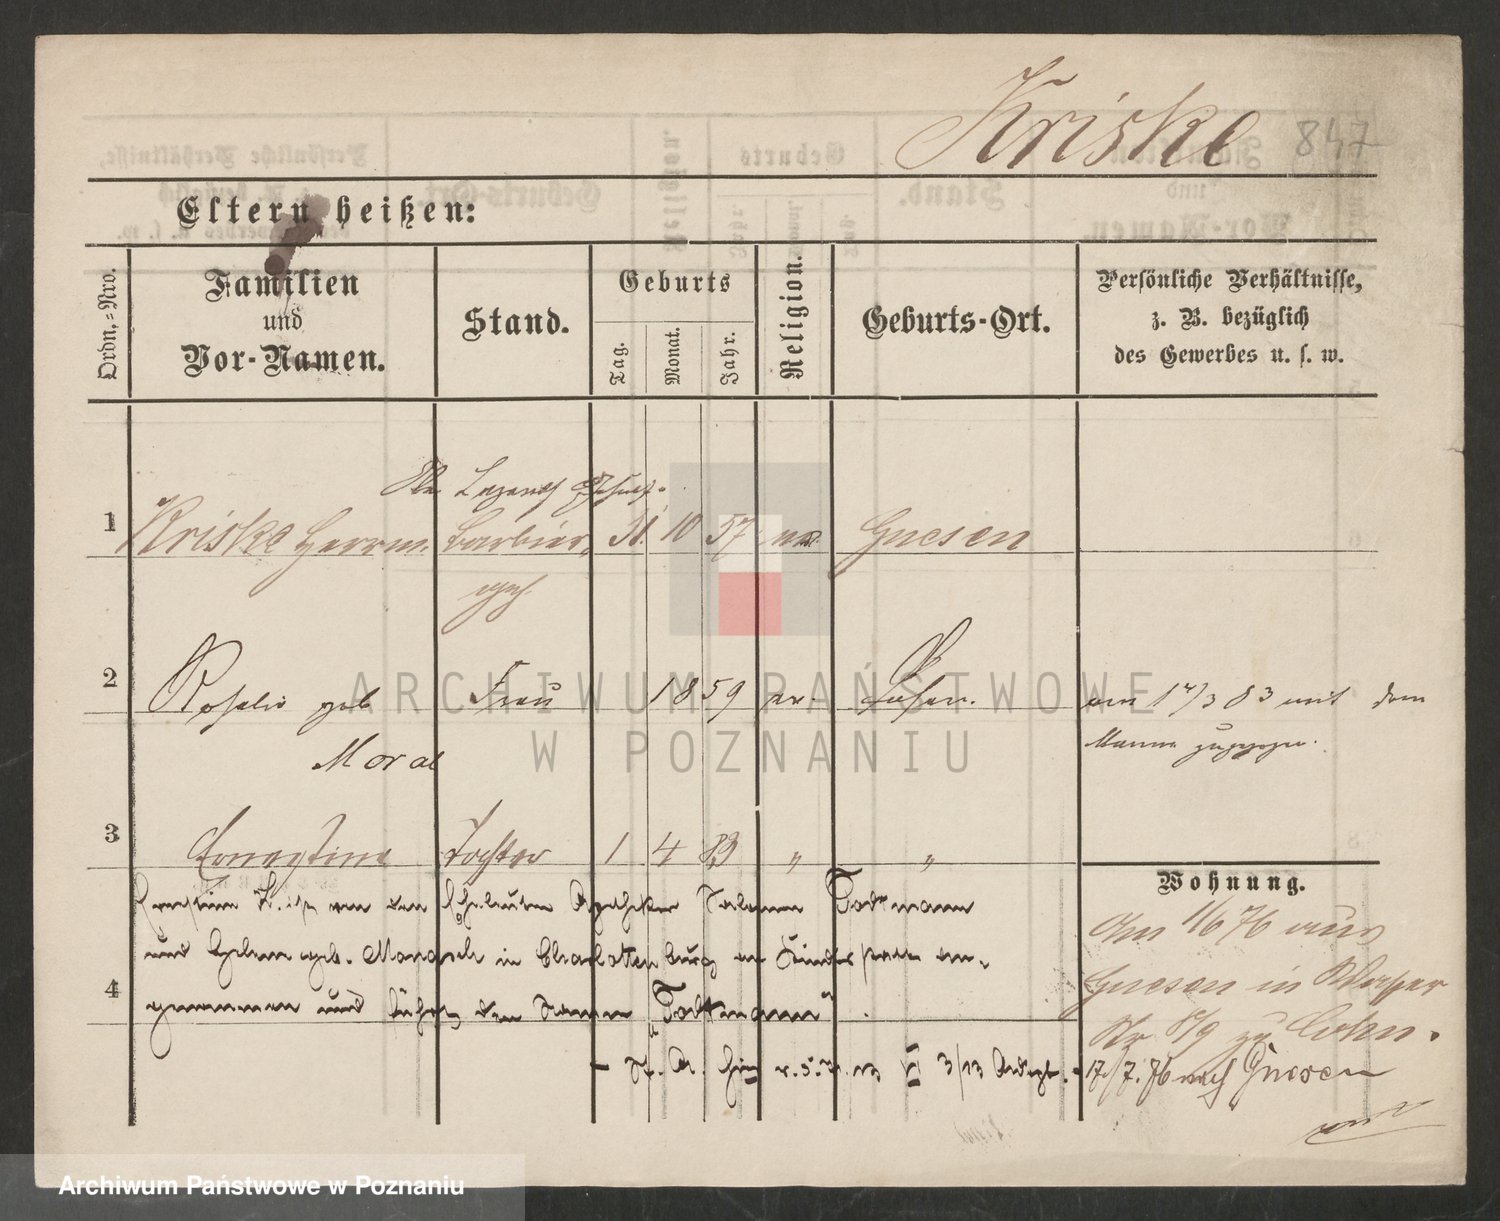 Kriske 847
Eltern heißen:
Ordn.-Nro.
Familien
und
Vor-Namen.
Stand.
Geburts
Tag.
Monat.
Jahr.
Religion.
Geburts-Ort.
Persönliche Verhältnisse,
z. B. bezüglich
des Gewerbes u. s. w.
1 Kriske Herrm. Barbier 31. 10 57 mos. Gnesen
2 Rosalie geb Frau 1859 Posen. am 17/3 83 mit dem
Moral Manne zugezogen.
3 Ernestine Tochter 1 4 83 " "
Wohnung.
Ernestine von den Eheleuten Apotheker Salomon Todtmann
und geb. Manasse in Charlottenburg an Kindesstatt an-
4 genommen und führt den Namen "Todtmann"
Am 1/6 76 aus
Gnesen in Wasser
Nr 8/9 zu Cohn.
3/13
17/7. 76 nach Gnesen
ARCHIWUM PAŃSTWOWE
W POZNANIU
Archiwum Państwowe w Poznaniu